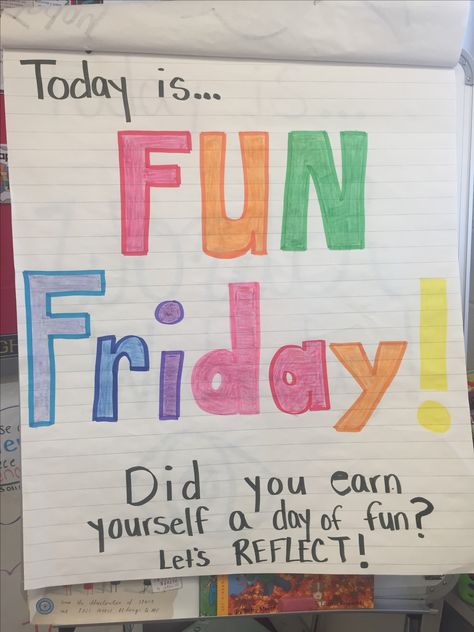 Today is...
FUN
Friday!
Did you earn
yourself a day of fun?
Let's REFLECT!